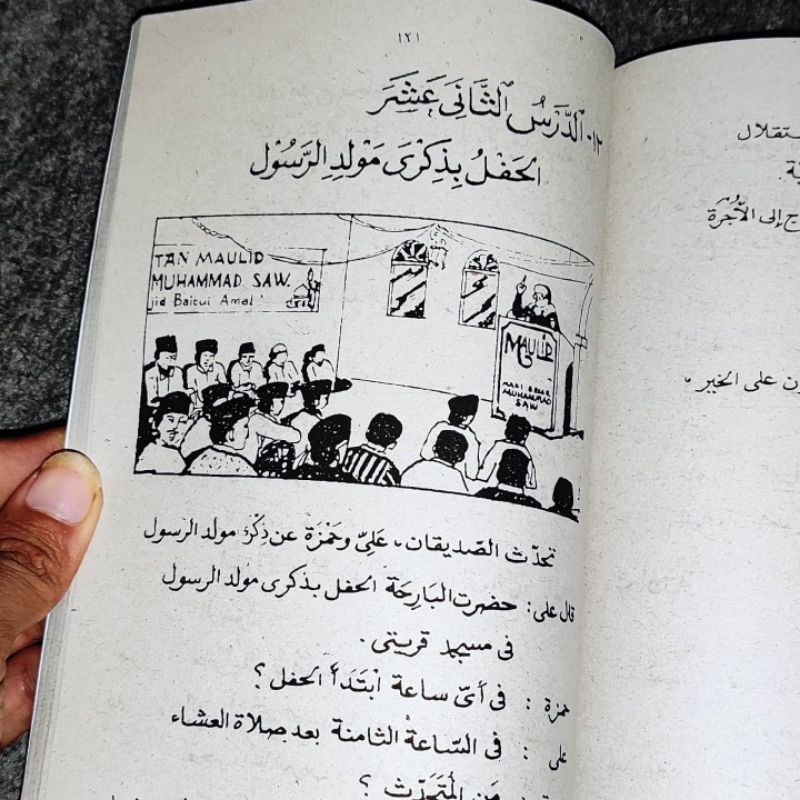 ١٢١
١٢. الدَّرْسُ الثَّانَي عَشَرَ
الحَفْلُ بِذِكْرَى مَوْلِدِ الرَّسُوْل
TAN MAULID
MUHAMMAD SAW.
jid Baitul Amal
MAULID
NABI BESAR
MUHAMMAD
SAW
تحدّث الصّديقان، عَلِىّ وحَمْزَة عن ذِكْرَ مولد الرسول
قال على : حضرت البَارِحَة الحفل بذكرى مولد الرسول
فى مسجد قريتى .
حمزة : فى أىّ ساعة اِبْتَدَأَ الحفل ؟
على : فى السّاعة الثامنة بعد صلاة العشاء
مَنِ الْمُتَحَدِّث ؟
ستقلال
يّة
ج إلى الأُجرة
ون على الخير .